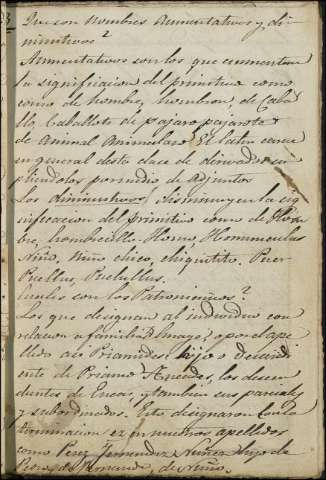 Que son Nombres Aumentativos y di-
minutivos?
Aumentativos son los que aumentan
la significacion del primitivo como
como de hombre, hombron, de Caba
llo Caballote de pajaro pajarote
de Animal Animalazo El latin carece
en general desta clace de derivados su
pliendolos por medio de Adjuntos
Los diminutivos disminuyen la sig
nificacion del primitivo como de Hom
bre, hombrecillo. Homo, Homunculus
Niño, Niño chico, chiquitito. Puer
Puellus, Puelullus.
cuales son los Patronimicos?
Los que designan al individuo con
relacion a familia o por el ape
llido asi Priamides hijo o decendi
ente de Priamo Aneades, los descen
dientes de Eneas, y tambien sus parciales
y subordinados. Esto designaron con la
terminacion ez en nuestros apellidos
como Perez Fernandez Nuñez hijo de
Pedro, de Fernando, de Nuño.